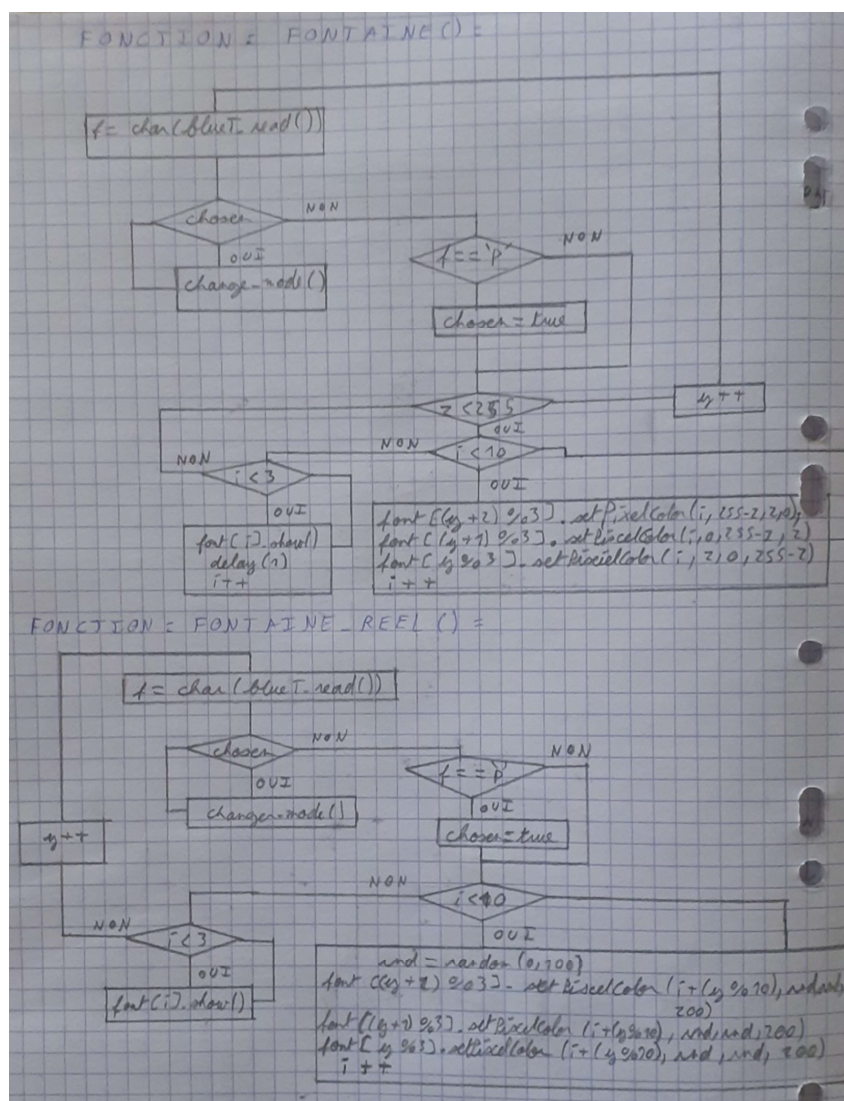 FONCTION = FONTAINE() =
f = char(blueT.read())
chosen
NON
OUI
change-mode()
f == 'P'
NON
chosen = true
z < 255
y++
OUI
NON
i < 10
NON
i < 3
OUI
OUI
font(i).show()
delay(1)
i++
font[(y+2)%3].setPixelColor(i,255-z,z,0);
font[(y+1)%3].setPixcelColor(i,0,255-z,z)
font[y%3].setPixcielColor(i,z,0,255-z)
i++
FONCTION = FONTAINE_REEL() =
f = char(blueT.read())
chosen
NON
OUI
changer-mode()
f == 'P'
NON
OUI
chosen = true
y++
NON
i < 10
OUI
NON
i < 3
OUI
font(i).show()
rnd = random(0,200)
font[(y+2)%3].setPixcelColor(i+(y%10), rnd, rnd,
200)
font[(y+1)%3].setPixelColor(i+(y%10), rnd, rnd, 200)
font[y%3].setPixcelColor(i+(y%20), rnd, rnd, 200)
i++